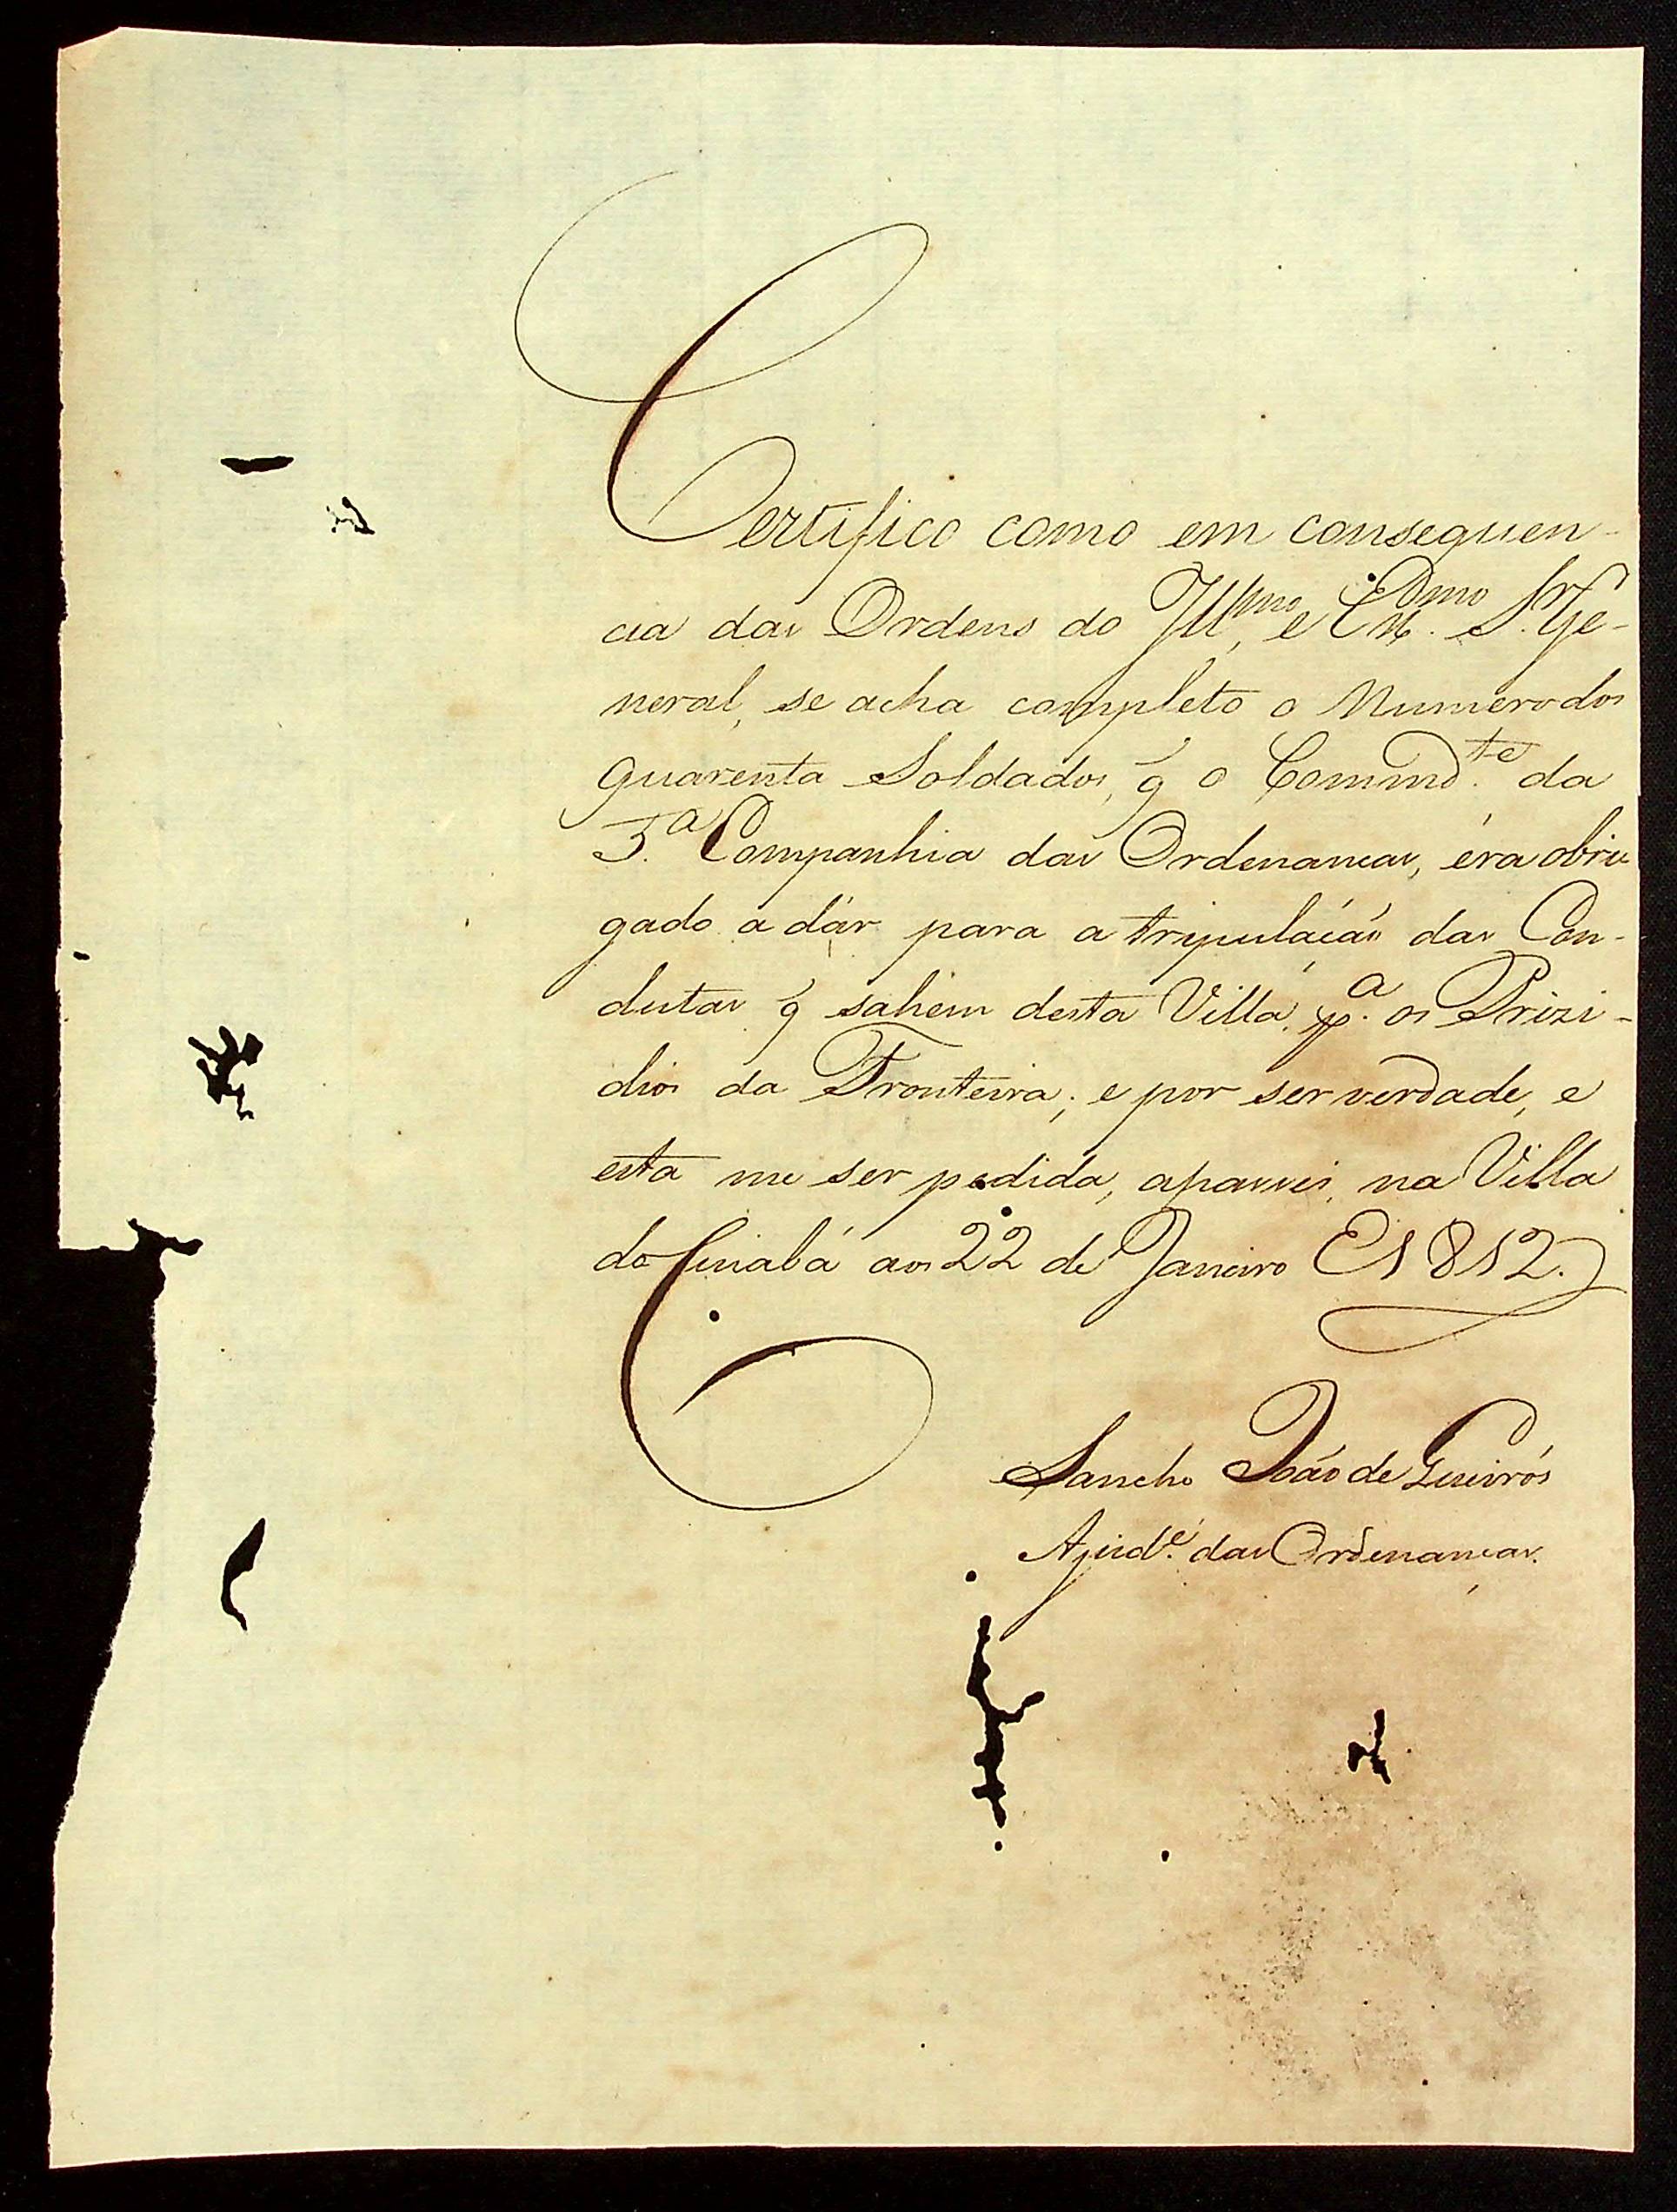 Certifico como em consequen-
cia das Ordens do Illmo, e Exmo. Sr. Ge-
neral, se acha completo o Numero dos
quarenta Soldados, q̃ o Commdte. da
3.a Companhia das Ordenanças, éra obri
gado a dár para a tripuláçáõ das Con-
dutas q̃ sahem desta Villa, pa. os Prizi-
dios da Fronteira; e por ser verdade, e
esta me ser pedida, a passei, na Villa
do Cuiabá aos 22 de Janeiro E 1812.
Sancho Joáo de Queirós
Ajude. das Ordenanças.